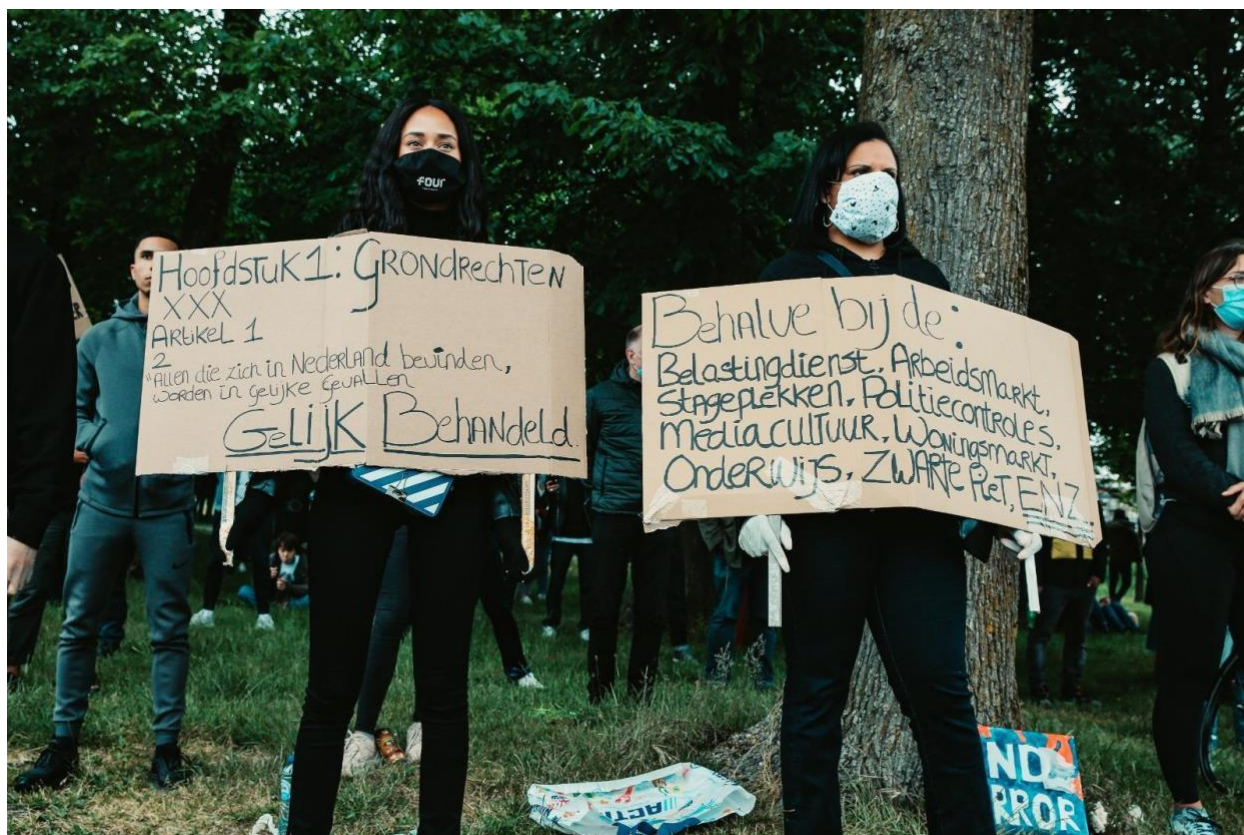 four
Hoofdstuk 1: Grondrechten
XXX
Artikel 1
2
"Allen die zich in Nederland bevinden,
worden in gelijke gevallen
Gelijk Behandeld.
Behalve bij de:
Belastingdienst, Arbeidsmarkt,
Stageplekken, Politiecontroles,
Mediacultuur, Woningsmarkt,
Onderwijs, Zwarte Piet, ENZ
ACTI
ND
RROR